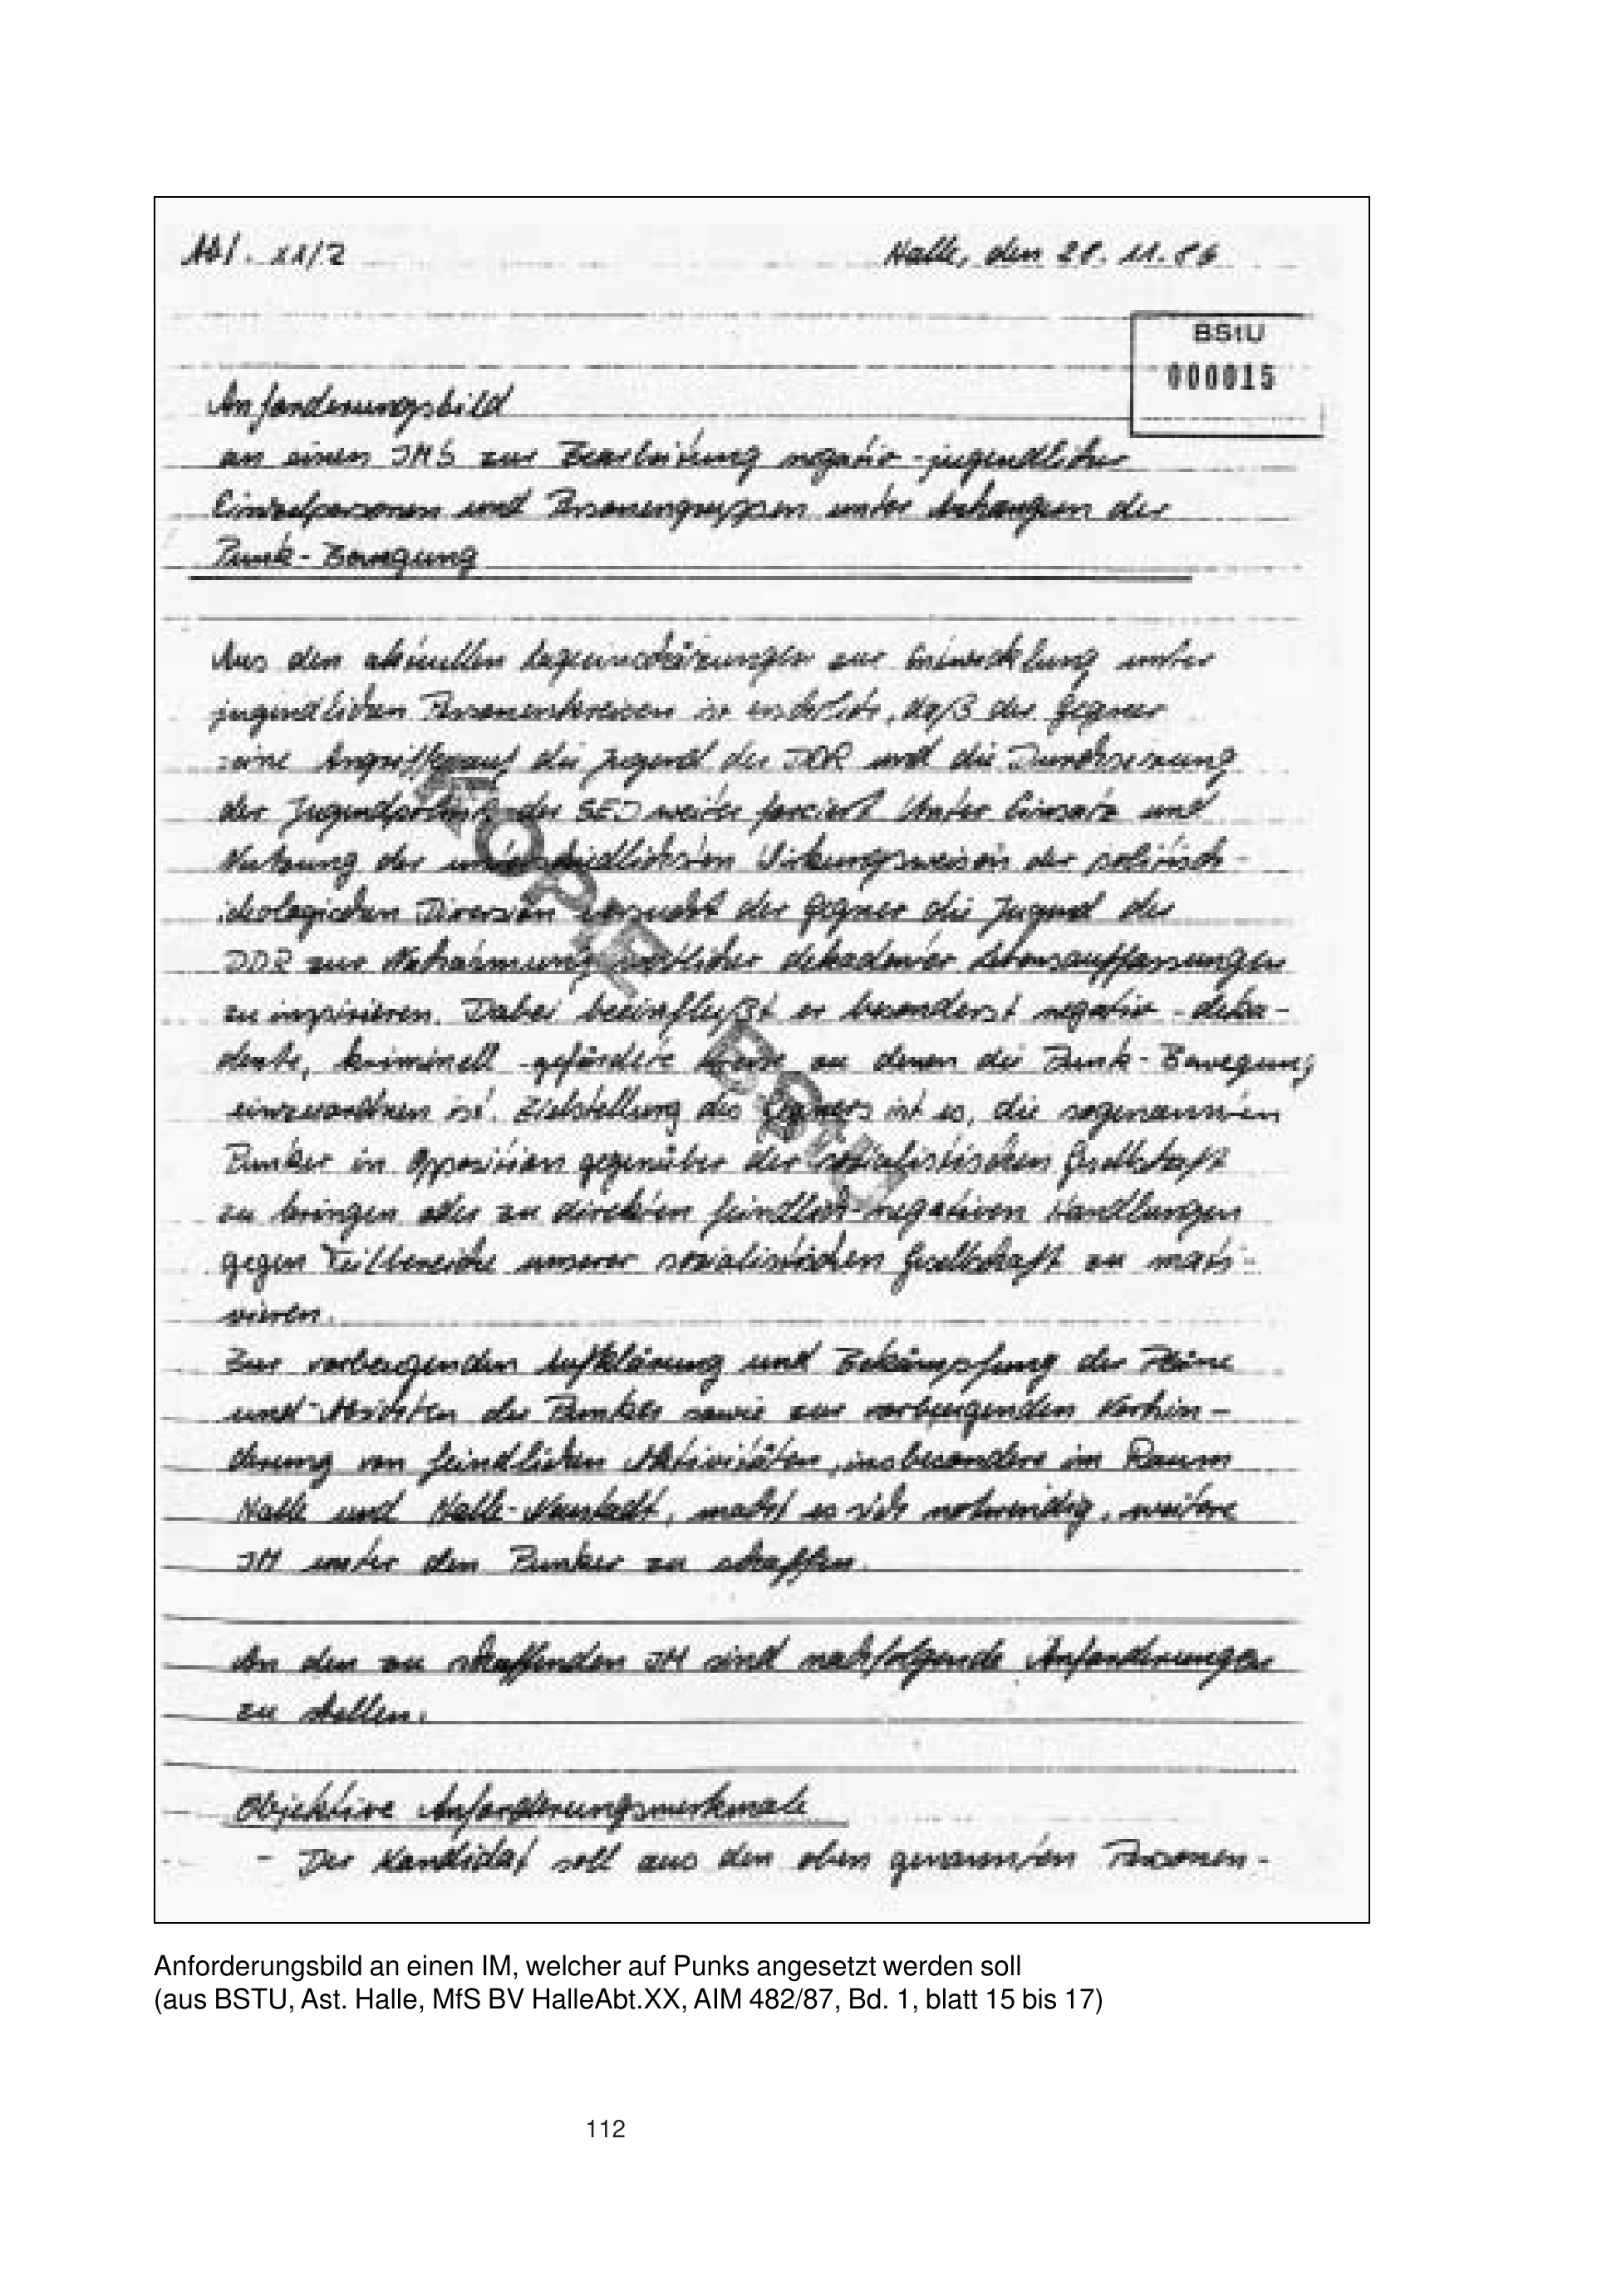 Abt. XX/2
Halle, den 28. 11. 86
BStU
000015
Anforderungsbild
an einen IMS zur Bearbeitung negativ-jugendlicher
Einzelpersonen und Personengruppen unter Anhängern der
Punk-Bewegung
Aus den aktuellen Lageeinschätzungen zur Entwicklung unter
jugendlichen Personenkreisen ist ersichtlich, daß der Gegner
seine Angriffe auf die Jugend der DDR und die Durchsetzung
der Jugendpolitik der SED weiter forciert. Unter Einsatz und
Nutzung der unterschiedlichsten Wirkungsweisen der politisch-
ideologischen Diversion versucht der Gegner die Jugend der
DDR zur Nachahmung westlicher dekadenter Lebensauffassungen
zu inspirieren. Dabei beeinflußt er besonderst negativ-deka-
dente, kriminell-gefährdete Kreise zu denen die Punk-Bewegung
einzuordnen ist. Zielstellung des Gegners ist es, die sogenannten
Punker in Opposition gegenüber der sozialistischen Gesellschaft
zu bringen oder zu direkten feindlich-negativen Handlungen
gegen Teilbereiche unserer sozialistischen Gesellschaft zu moti-
vieren.
Zur vorbeugenden Aufklärung und Bekämpfung der Pläne
und Absichten der Punker sowie zur vorbeugenden Verhin-
derung von feindlichen Aktivitäten, insbesondere im Raum
Halle und Halle-Neustadt, macht es sich notwendig, weitere
IM unter den Punker zu schaffen.
An den zu schaffenden IM sind nachfolgende Anforderungen
zu stellen:
Objektive Anforderungsmerkmale
- Der Kandidat soll aus den oben genannten Personen-
KOPIE BStU
Anforderungsbild an einen IM, welcher auf Punks angesetzt werden soll
(aus BSTU, Ast. Halle, MfS BV HalleAbt.XX, AIM 482/87, Bd. 1, blatt 15 bis 17)
112